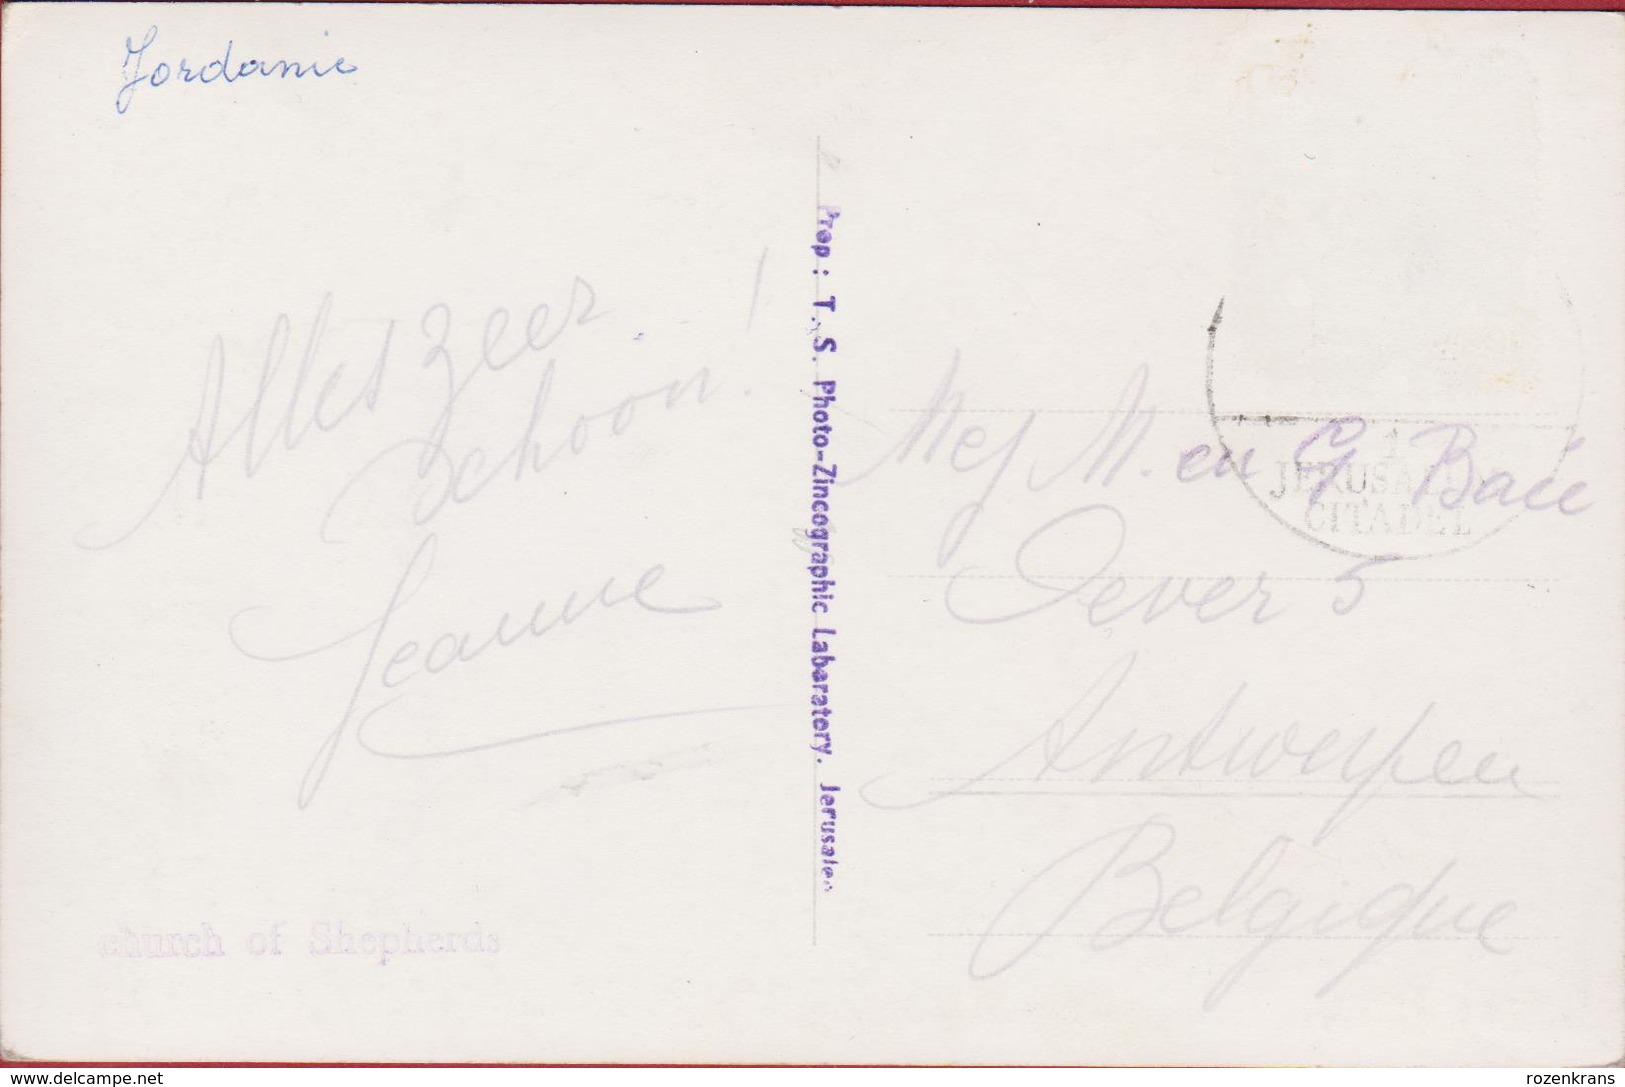 Jordanie
Alles zeer
schoon!
Jeanne
church of Shepherds
Prop: T. S. Photo-Zincographic Labaratery. Jerusalem
1
JERUSALEM
CITADEL
Mej M. en G Baii
Oever 5
Antwerpen
Belgique
www.delcampe.net
rozenkrans